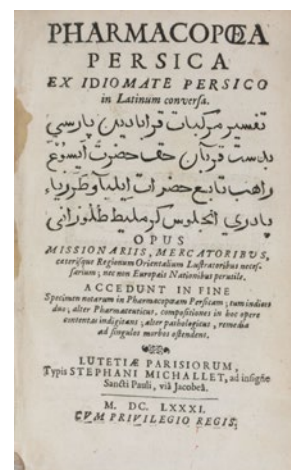 PHARMACOPŒA
PERSICA
EX IDIOMATE PERSICO
in Latinum conversa.
تفسير مركبات قرابادين پارسي
بدست قربان حف حضرت
راهب تابع حضرات
پادري انجلوس كرمليط طلوزاني
OPUS
MISSIONARIIS, MERCATORIBUS,
cæterisque Regionum Orientalium Lustratoribus neces-
sarium; nec non Europæis Nationibus perutile.
ACCEDUNT IN FINE
Specimen notarum in Pharmacopœam Persicam; tum indices
duo, alter Pharmaceuticus, compositiones in hoc opere
contentas indigitans; alter pathologicus, remedia
ad singulos morbos ostendens.
LUTETIÆ PARISIORUM,
Typis STEPHANI MICHALLET, ad insigne
Sancti Pauli, viâ Jacobeâ.
M. DC. LXXXI.
CVM PRIVILEGIO REGIS.